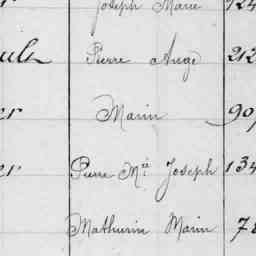 Joseph Marie 124
Pierre Ange 212
Marin 90
er Pierre Mie Joseph 134
Mathurin Marin 78